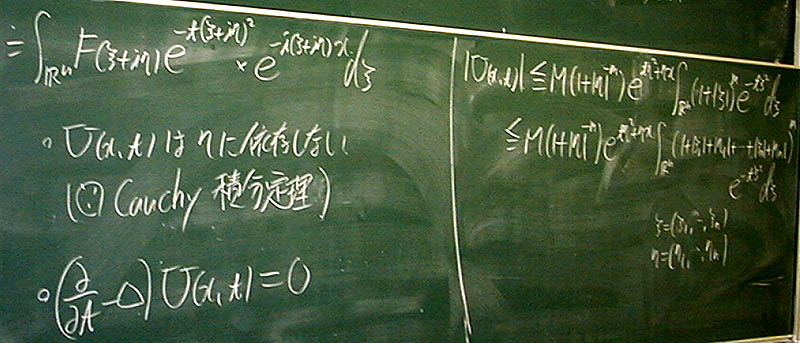 ≒ ∫_{ℝⁿ} F(ξ+iη) e^{-t(ξ+iη)²} × e^{-i(ξ+iη)x} dξ
。U(x,t) は η に依存しない
(∵ Cauchy 積分定理)
。(∂/∂t - Δ) U(x,t) = 0
|U(x,t)| ≦ M(1+|η|^{-n}) e^{tη²+ηx} ∫_{ℝⁿ} (1+|ξ|)^m e^{-tξ²} dξ
≦ M(1+|η|^{-n}) e^{tη²+ηx} ∫_{ℝⁿ} (1+|ξ₁|+|ξ₂|+…+|ξₙ|)^m
e^{-tξ²} dξ
ξ=(ξ₁,…,ξₙ)
η=(η₁,…,ηₙ)